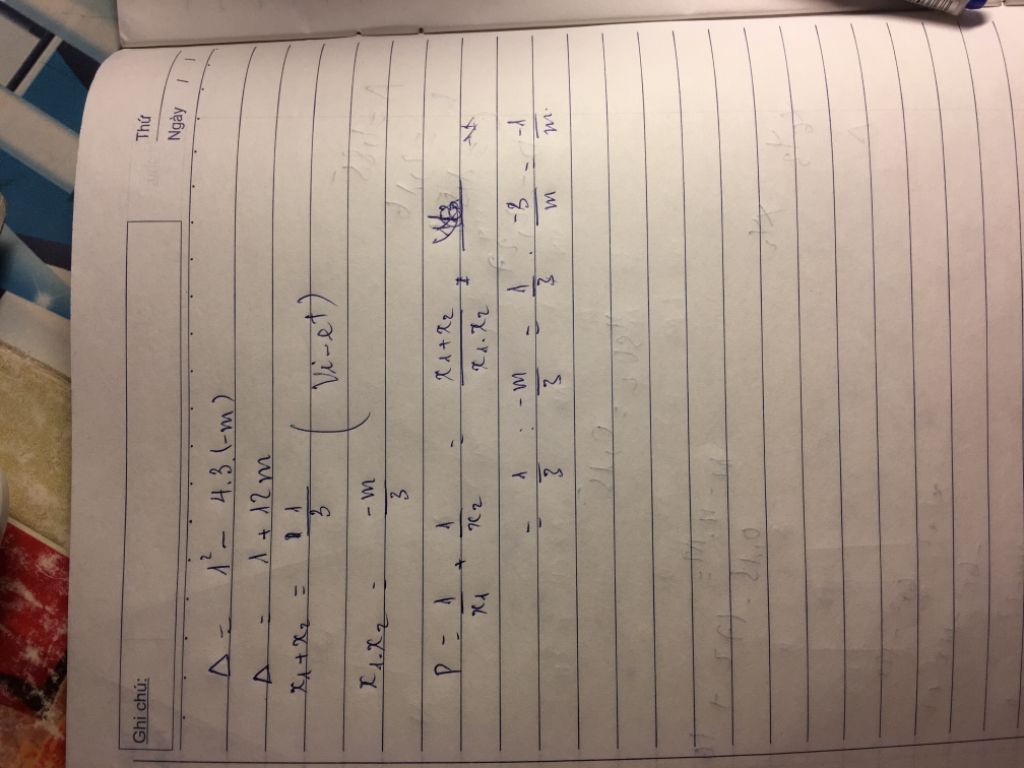 Ghi chú:
Thứ
Ngày
Δ = 1² - 4.3.(-m)
Δ = 1 + 12m
x₁+x₂ = 1/3 (Vi-et)
x₁.x₂ = -m/3
P = 1/x₁ + 1/x₂ = x₁+x₂/x₁.x₂
= 1/3 : -m/3 = 1/3 . -3/m = -1/m.